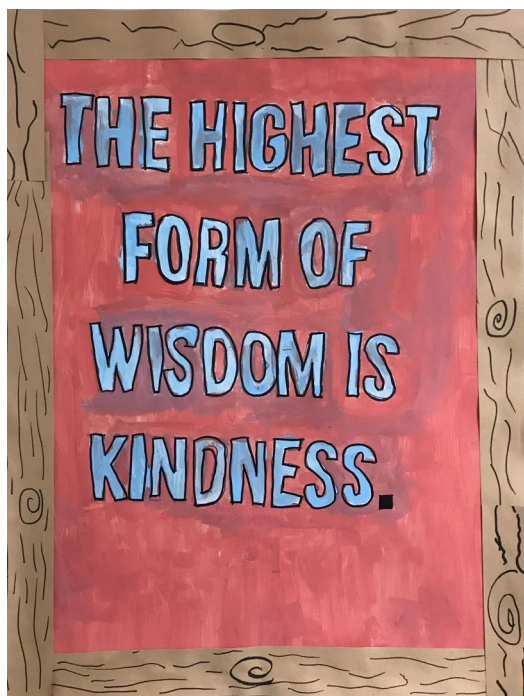 THE HIGHEST
FORM OF
WISDOM IS
KINDNESS.